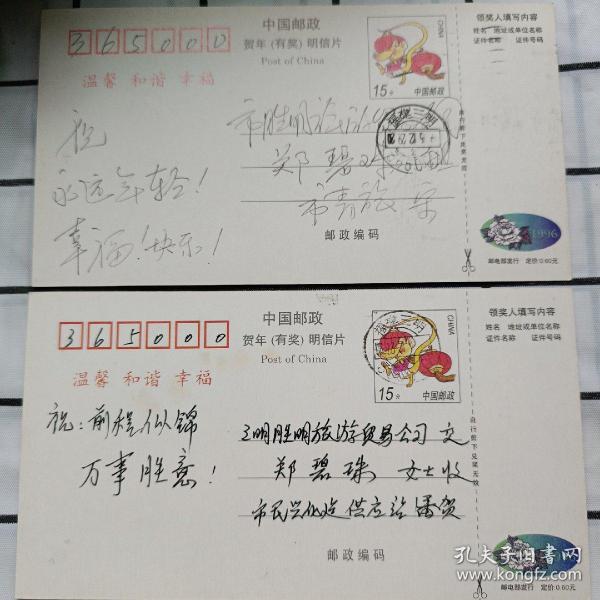 365000
中国邮政
贺年(有奖)明信片
Post of China
温馨 和谐 幸福
CHINA
15分 中国邮政
领奖人填写内容
姓名 地址或单位名称
证件名称 证件号码
自行剪下兑奖无效
祝
永远年轻!
幸福!快乐!
郑碧珠
市青旅
邮政编码
1996
邮电部发行 定价:0.60元
365000
中国邮政
贺年(有奖)明信片
Post of China
温馨 和谐 幸福
CHINA
15分 中国邮政
领奖人填写内容
姓名 地址或单位名称
证件名称 证件号码
自行剪下兑奖无效
祝:前程似锦
万事胜意!
三明胜明旅游贸易公司 交
郑碧珠 女士收
市民兴化造供应站潘贺
邮政编码
邮电部发行 定价:0.60元
孔夫子旧书网
www.kongfz.com